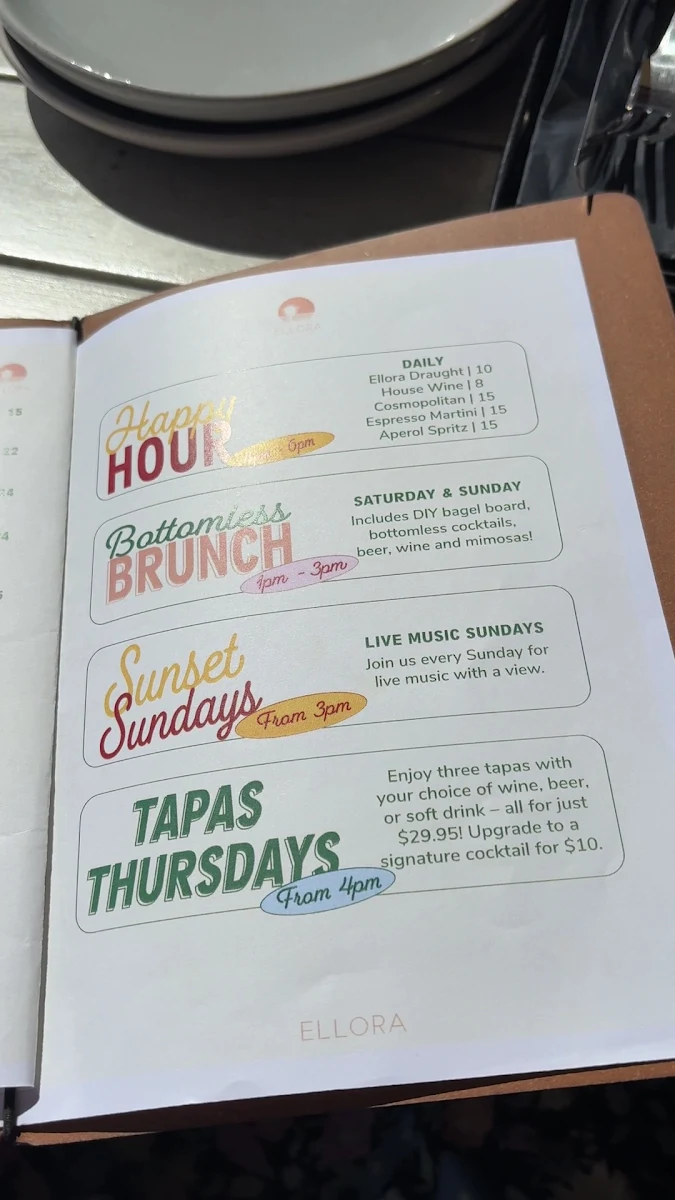 15
22
ELLORA
Happy
HOUR
6pm
DAILY
Ellora Draught | 10
House Wine | 8
Cosmopolitan | 15
Espresso Martini | 15
Aperol Spritz | 15
Bottomless
BRUNCH
1pm - 3pm
SATURDAY & SUNDAY
Includes DIY bagel board,
bottomless cocktails,
beer, wine and mimosas!
Sunset
Sundays
From 3pm
LIVE MUSIC SUNDAYS
Join us every Sunday for
live music with a view.
TAPAS
THURSDAYS
From 4pm
Enjoy three tapas with
your choice of wine, beer,
or soft drink – all for just
$29.95! Upgrade to a
signature cocktail for $10.
ELLORA